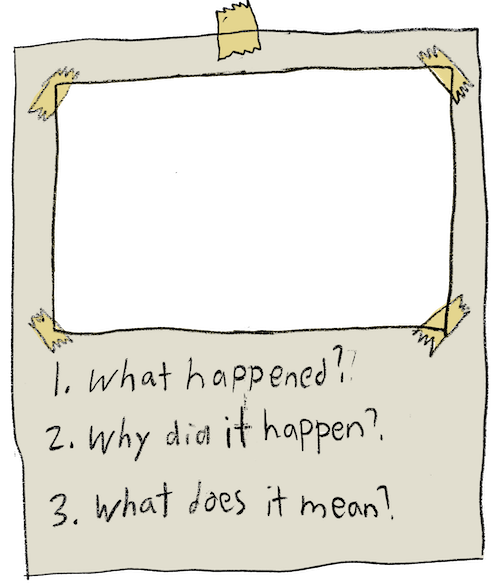 1. What happened?
2. Why did it happen?
3. What does it mean?